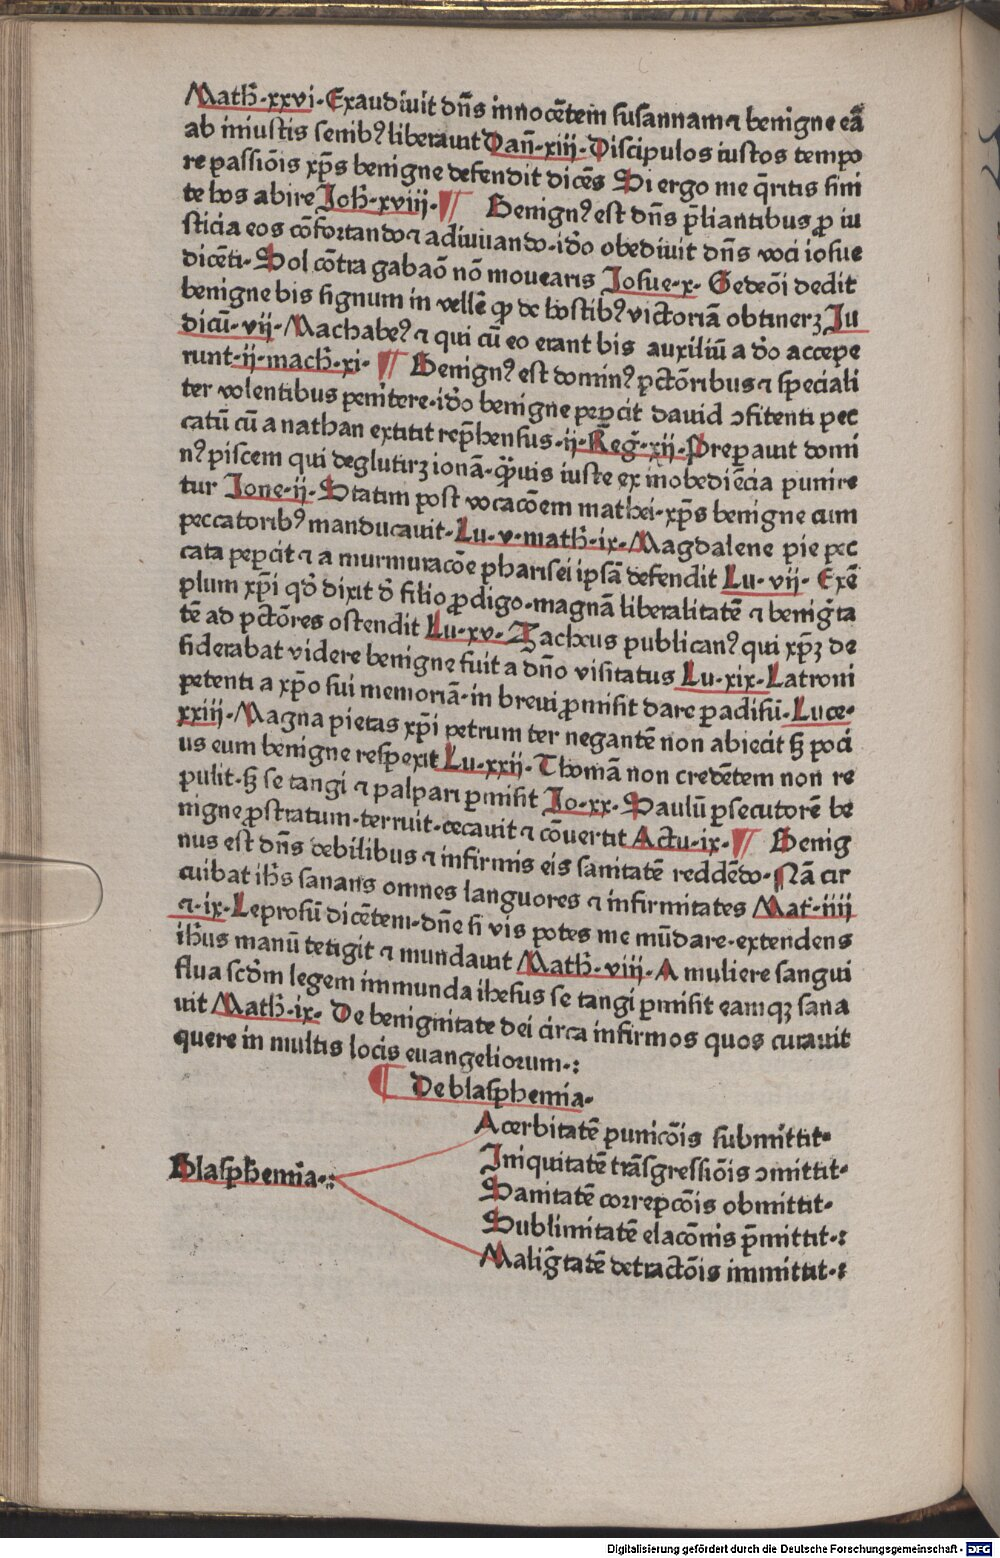 Math̄·xxvi·Exaudiuit dn̄s innocētem susannam ⁊ benigne eā
ab iniustis senibꝰ liberauit Dan̄·xiii·Discipulos iustos tempo
re passiōis xp̄s benigne defendit dicēs Si ergo me q̄ritis sini
te hos abire Joh̄·xviii·¶ Benignꝰ est dn̄s p̄liantibus ꝓ iu
sticia eos cōfortando ⁊ adiuuando·iḋo obediuit dn̄s voci iosue
dicēti·Sol cōtra gabaō nō mouearis Josue·x·Gedeōi dedit
benigne bis signum in vellē ꝙ de hostibꝰ victoriā obtinerꝫ Ju
dicū·vij·Machabeꝰ ⁊ qui cū eo erant bis auxiliū a ḋo accepe
runt·ij·mach̄·xi·¶ Benignꝰ est dominꝰ pctōribus ⁊ speciali
ter volentibus penitere·iḋo benigne peꝑcit dauid ↄfitenti pec
catū cū a nathan extitit rep̄hensus·ij·Reḡ·xij·Preꝑauit domi
nꝰ piscem qui deglutirꝫ ionā·q̄uis iuste ex inobediēcia punire
tur Jone·ij·Statim post vocacōem mathei·xp̄s benigne cum
peccatoribꝰ manducauit·Lu·v·math̄·ix·Magdalene pie pec
cata peꝑcit ⁊ a murmuracōe pharisei ipsā defendit Lu·vij·Exē
plum xp̄i qḋ dixit ḋ filio ꝓdigo·magnā liberalitatē ⁊ beniḡta
tē ad pctōres ostendit Lu·xv·Zacheus publicanꝰ qui xp̄ꝫ de
siderabat videre benigne fuit a dn̄o visitatus Lu·xix·Latroni
petenti a xp̄o sui memoriā·in breui ꝓmisit dare ꝑadisū·Luce·
xxiij·Magna pietas xp̄i petrum ter negantē non abiecit sꝫ poci
us eum benigne respexit Lu·xxij·Thomā non credētem non re
pulit·sꝫ se tangi ⁊ palpari ꝑmisit Jo·xx·Paulū ꝑsecutorē be
nigne ꝓstratum·terruit·cecauit ⁊ cōuertit Actu·ix·¶ Benig
nus est dn̄s debilibus ⁊ infirmis eis sanitatē reddēdo·Nā cir
cuibat ih̄s sanans omnes languores ⁊ infirmitates Mat̄·iiij
⁊·ix·Leprosū dicētem·dn̄e si vis potes me mūdare·extendens
ih̄us manū tetigit ⁊ mundauit Math̄·viij·A muliere sangui
flua scḋm legem immunda ihesus se tangi ꝑmisit eamqꝫ sana
uit Math̄·ix·De benignitate dei circa infirmos quos curauit
quere in multis locis euangeliorum·:
¶ De blasphemia·
Acerbitatē punicōis submittit·
Iniquitatē trāsgressiōis ↄmittit·
Blasph̄emia·:
Sanitatē correpcōis obmittit·
Sublimitatē elacōnis p̄mittit·:
Maliḡtatē detractōis immittit·:
Digitalisierung gefördert durch die Deutsche Forschungsgemeinschaft - DFG